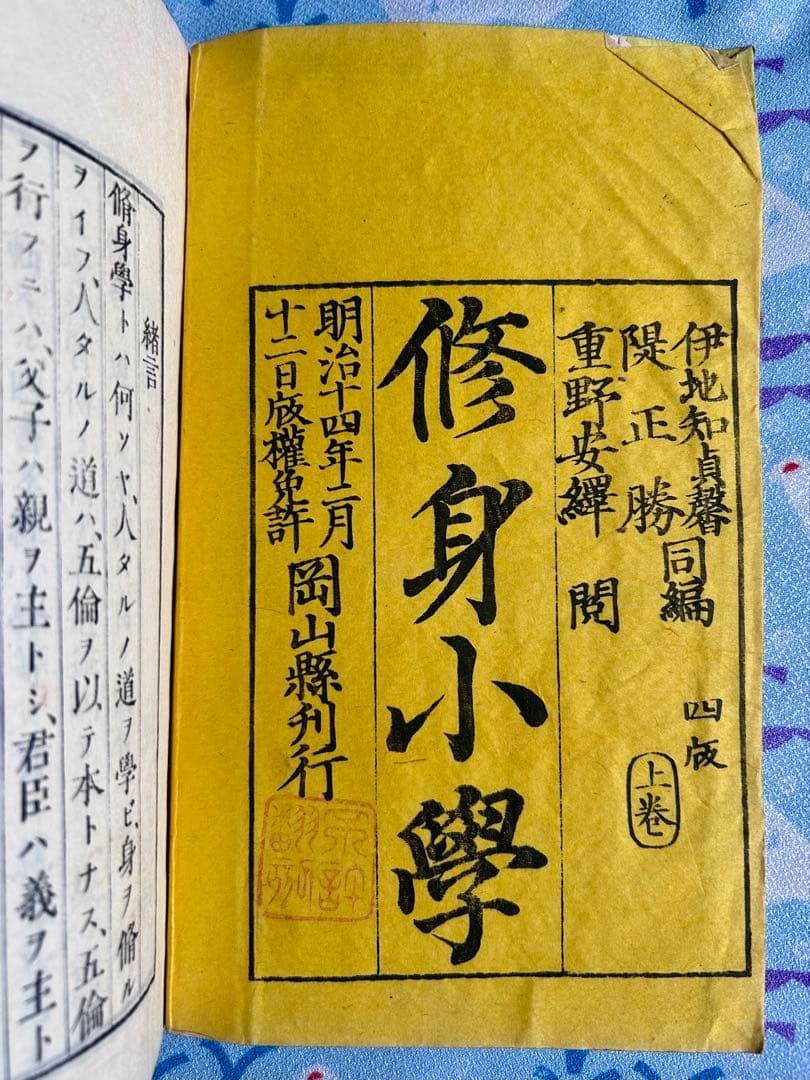 伊地知貞馨
隄正勝
同編
四版
上卷
重野安繹
閲
修身小學
明治十四年二月
十二日版權免許
岡山縣刊行
不許
翻刻
緒言
脩身學トハ何ソヤ、人タルノ道ヲ學ビ、身ヲ脩ル
ヲイフ、人タルノ道ハ、五倫ヲ以テ本トナス、五倫
ヲ行フニハ、父子ハ親ヲ主トシ、君臣ハ義ヲ主ト